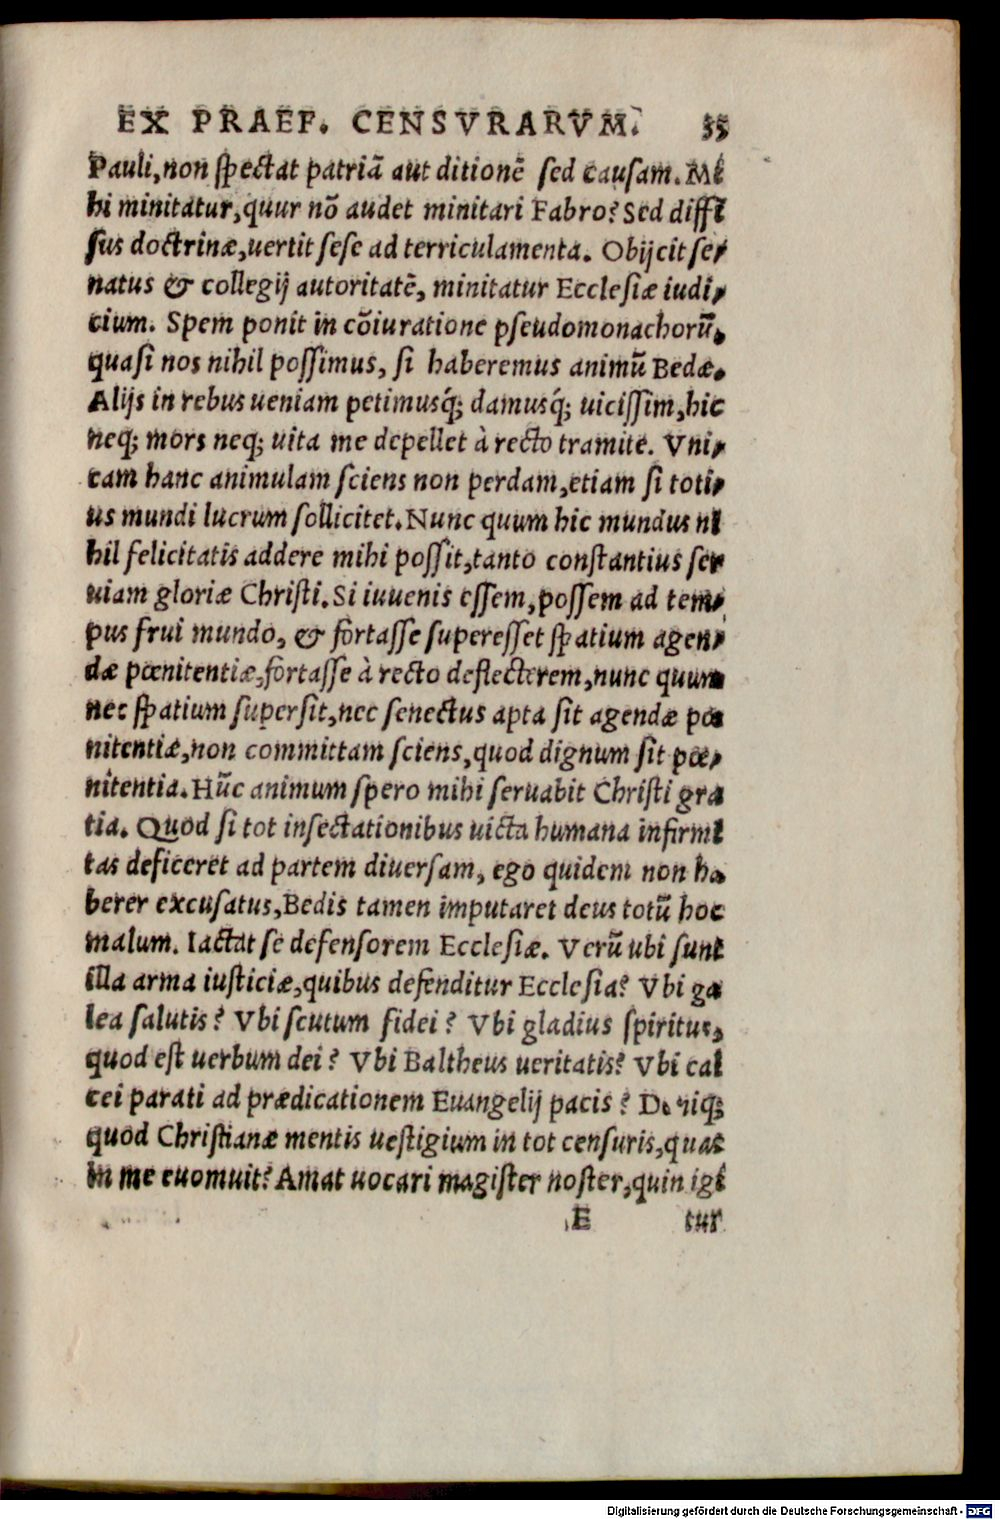 EX PRAEF. CENSVRARVM. 35
Pauli, non spectat patriā aut ditionē sed causam. Mi
hi minitatur, quur nō audet minitari Fabro? Sed diffi
sus doctrinæ, uertit sese ad terriculamenta. Obijcit se-
natus & collegij autoritatē, minitatur Ecclesiæ iudi-
cium. Spem ponit in cōiuratione pseudomonachorū,
quasi nos nihil possimus, si haberemus animū Bedæ.
Alijs in rebus ueniam petimusq́; damusq́; uicissim, hic
neq; mors neq; uita me depellet à recto tramite. Vni-
cam hanc animulam sciens non perdam, etiam si toti-
us mundi lucrum sollicitet. Nunc quum hic mundus ni
hil felicitatis addere mihi possit, tanto constantius ser
uiam gloriæ Christi. Si iuuenis essem, possem ad tem-
pus frui mundo, & fortasse superesset spatium agen-
dæ pœnitentiæ, fortasse à recto deflecterem, nunc quum
nec spatium supersit, nec senectus apta sit agendæ pœ
nitentiæ, non committam sciens, quod dignum sit pœ-
nitentia. Hūc animum spero mihi seruabit Christi gra
tia. Quod si tot insectationibus uicta humana infirmi
tas deficeret ad partem diuersam, ego quidem non ha
berer excusatus, Bedis tamen imputaret deus totū hoc
malum. Iactat se defensorem Ecclesiæ. Verū ubi sunt
illa arma iusticiæ, quibus defenditur Ecclesia? Vbi ga
lea salutis? Vbi scutum fidei? Vbi gladius spiritus,
quod est uerbum dei? Vbi Baltheus ueritatis? Vbi cal
cei parati ad prædicationem Euangelij pacis? Deniq;
quod Christianæ mentis uestigium in tot censuris, quas
in me euomuit? Amat uocari magister noster, quin igi
E tur
Digitalisierung gefördert durch die Deutsche Forschungsgemeinschaft - DFG